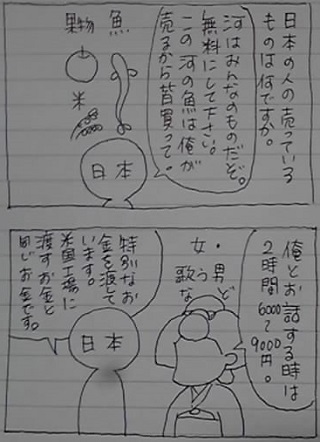 日本の人の売っている
ものは何ですか。
河はみんなのものだぞ。
無料にして下さい。
この河の魚は俺が
売るから皆買って。
魚
果物
米
日本
俺とお話する時は
2時間6000〜9000円。
・男ど
女う
歌な
特別なお
金を渡して
います。
米国工場に
渡すお金と
同じお金です。
日本